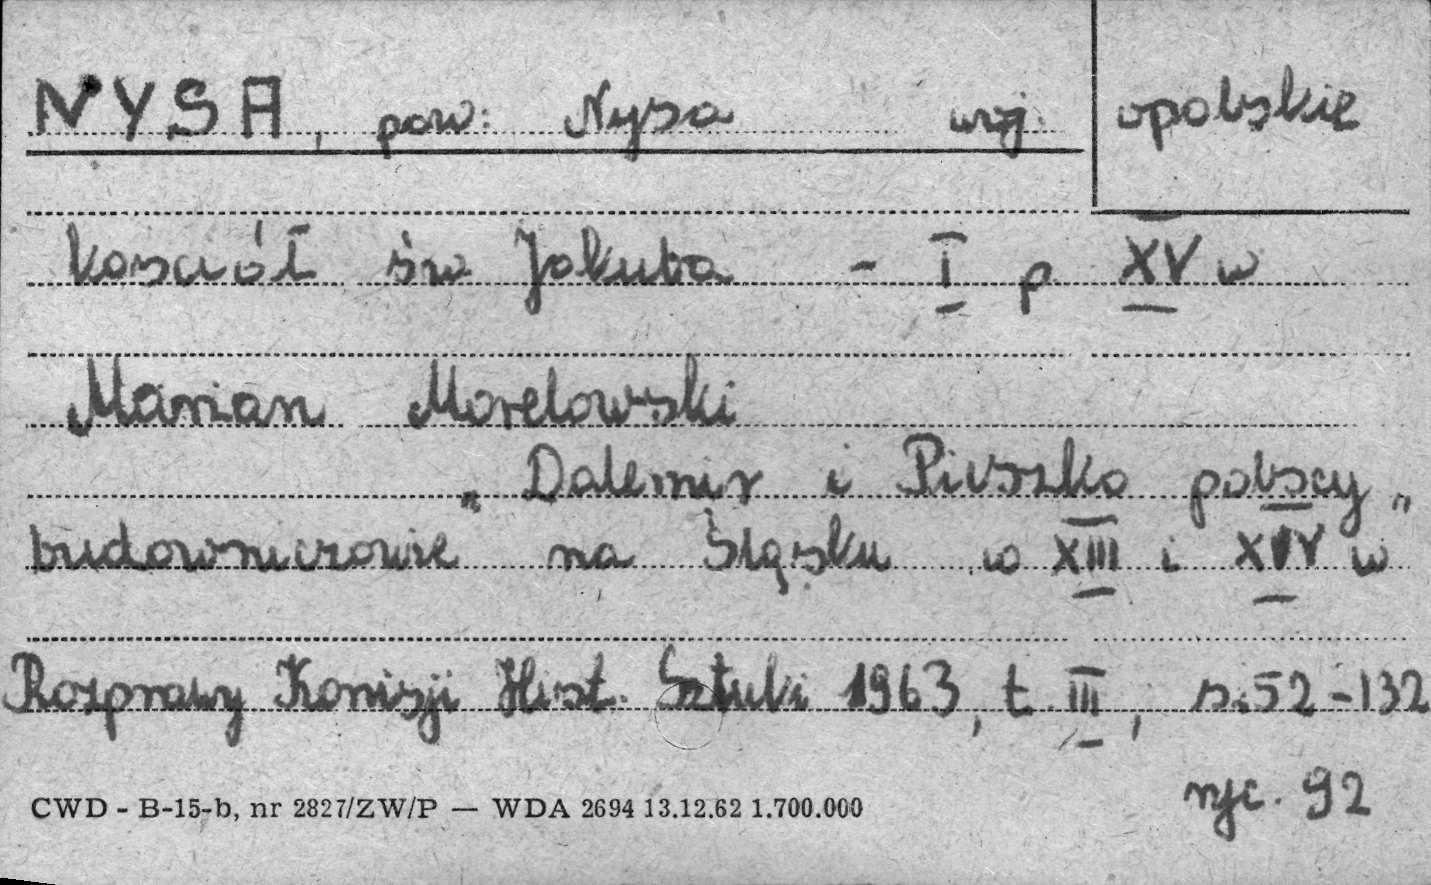 NYSA, pow: Nysa woj. opolskie
kosciół św Jakuba - I p. XV w
Marian Morelowski
„Dalemir i Pieszko polscy"
budowniczowie na Śląsku w XIII i XIV w
Rozprawy Komisji Hist. Sztuki 1963, t. III, s. 52-132
ryc. 92
CWD - B-15-b, nr 2827/ZW/P — WDA 2694 13.12.62 1.700.000